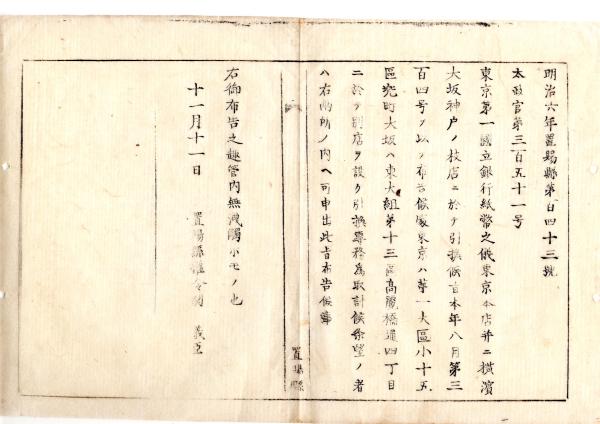 明治六年置賜縣第百四十三號
太政官第三百五十一号
東京第一國立銀行紙幣之儀東京本店并ニ横濵
大坂神戸ノ枝店ニ於テ引換候旨本年八月第三
百四号ヲ以テ布告候處東京ハ第一大區小十五
區兜町大坂ハ東大組第十三區高麗橋通四丁目
ニ於テ別店ヲ設ケ引換事務為取計候条望ノ者
ハ右両所ノ内ヘ可申出此旨布告候事
置賜縣
右御布告之趣管内無洩觸示モノ也
十一月十一日
置賜縣權令 義臣